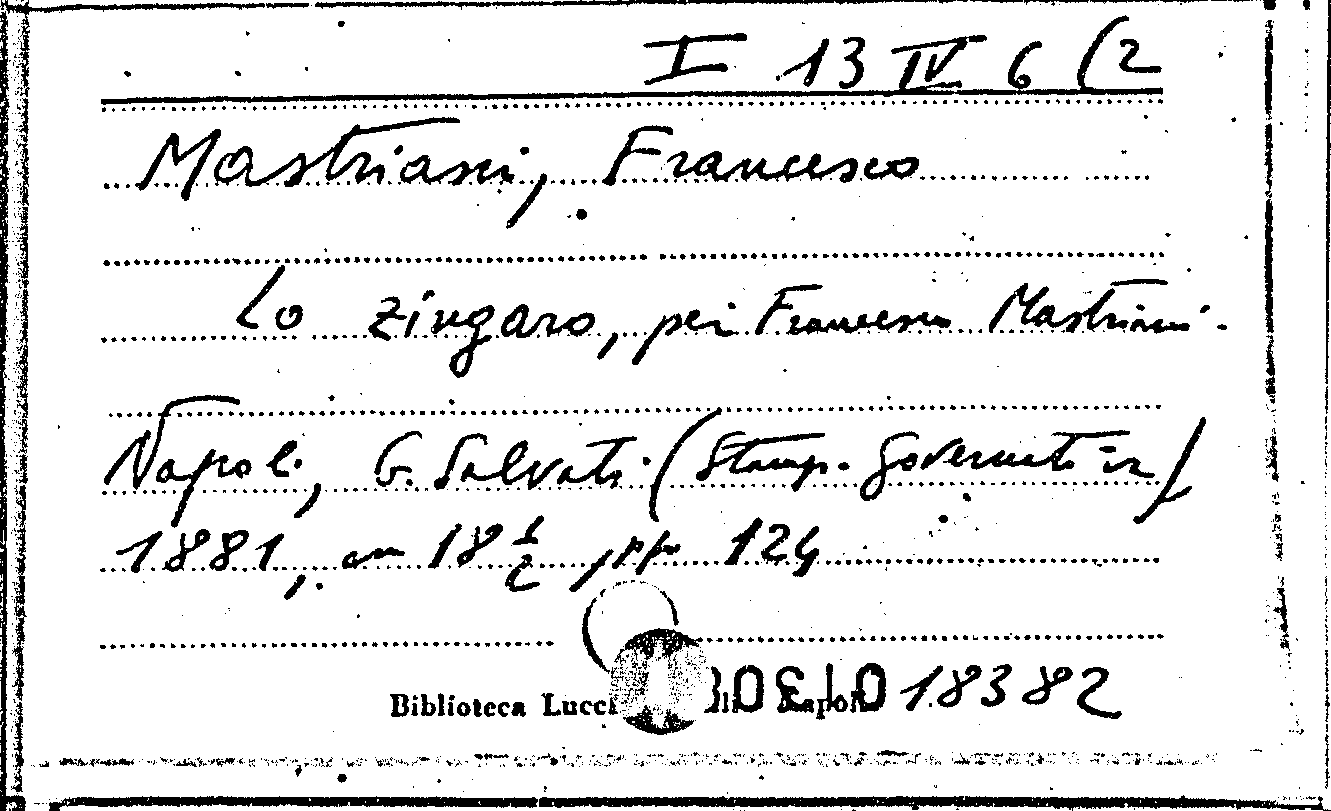 I 13 IV 6 (2
Mastriani, Francesco
Lo zingaro, per Francesco Mastriani.
Napoli, G. Salvati (Stamp. Governativa)
1881, cm 18 1/2 pp. 124
Biblioteca Lucch 18382